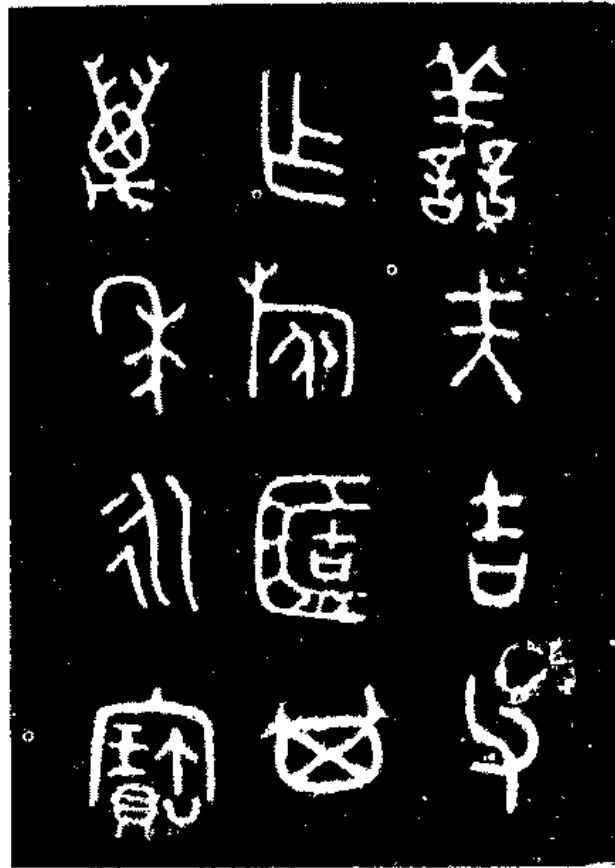 譱夫吉父
乍旅𠤳其
萬年永寶